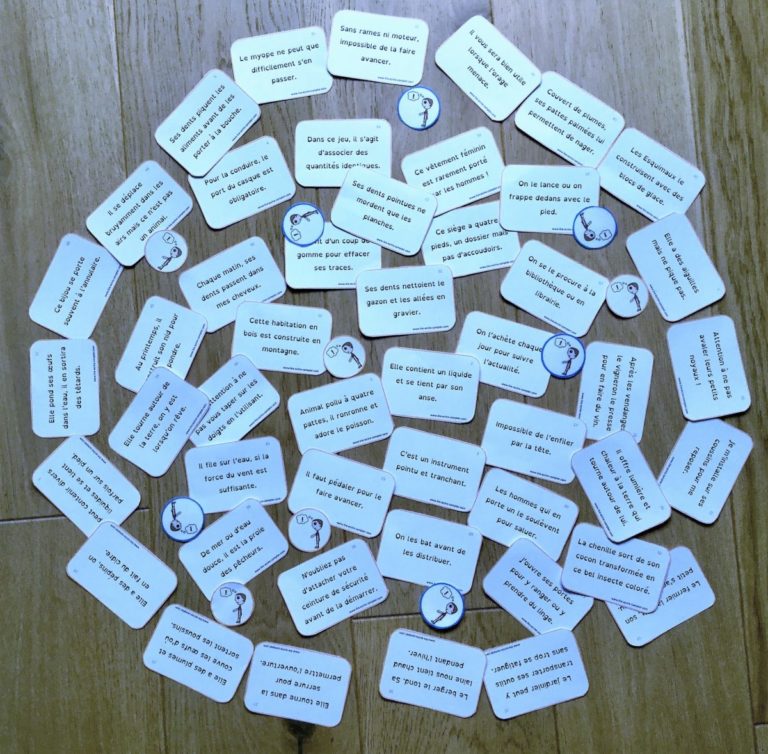 Sans rames ni moteur,
impossible de la faire
avancer.
Le myope ne peut que
difficilement s'en
passer.
Il vous sera bien utile
lorsque l'orage
menace.
Ses dents piquent les
aliments avant de les
porter à la bouche.
Couvert de plumes,
ses pattes palmées lui
permettent de nager.
Dans ce jeu, il s'agit
d'associer des
quantités identiques.
Ce vêtement féminin
est rarement porté
par les hommes !
Les Esquimaux le
construisent avec des
blocs de glace.
Pour la conduire, le
port du casque est
obligatoire.
Ses dents pointues ne
mordent que les
planches.
On le lance ou on
frappe dedans avec le
pied.
Il se déplace
bruyamment dans les
airs mais ce n'est pas
un animal.
d'un coup de
gomme pour effacer
ses traces.
Ce siège a quatre
pieds, un dossier mais
pas d'accoudoirs.
Elle a des aiguilles
mais ne pique pas.
Ce bijou se porte
souvent à l'annulaire.
Chaque matin, ses
dents passent dans
mes cheveux.
Ses dents nettoient le
gazon et les allées en
gravier.
On se le procure à la
bibliothèque ou en
librairie.
Au printemps, il
son nid pour
pondre.
Cette habitation en
bois est construite en
montagne.
On l'achète chaque
jour pour suivre
l'actualité.
Attention à ne pas
avaler leurs petits
noyaux !
Elle pond ses œufs
dans l'eau, il en sortira
des têtards.
Elle tourne autour de
la terre, on y est
lorsqu'on rêve.
attention à ne
pas vous taper sur les
doigts en l'utilisant.
Elle contient un liquide
et se tient par son
anse.
Après les vendanges,
le vigneron le presse
pour en faire du vin.
Animal poilu à quatre
pattes, il ronronne et
adore le poisson.
Impossible de l'enfiler
par la tête.
Je m'installe sur ses
coussins pour me
reposer.
Il file sur l'eau, si la
force du vent est
suffisante.
C'est un instrument
pointu et tranchant.
Il offre lumière et
chaleur à la terre qui
tourne autour de lui.
peut contenir divers
liquides et se tient
parfois sur un pied.
Il faut pédaler pour le
faire avancer.
Les hommes qui en
porte un le soulèvent
pour saluer.
De mer ou d'eau
douce, il est la proie
des pêcheurs.
On les bat avant de
les distribuer.
La chenille sort de son
cocon transformée en
ce bel insecte coloré.
Elle a des pépins, on
en fait du cidre.
N'oubliez pas
d'attacher votre
ceinture de sécurité
avant de la démarrer.
J'ouvre ses portes
pour y ranger ou y
prendre du linge.
Le fermier
petit
Elle a des plumes et
couve les œufs d'où
sortent les poussins.
Elle tourne dans la
serrure pour
permettre l'ouverture.
Le berger le tond. Sa
laine nous tient chaud
pendant l'hiver.
Le jardinier peut y
transporter ses outils
sans trop se fatiguer.